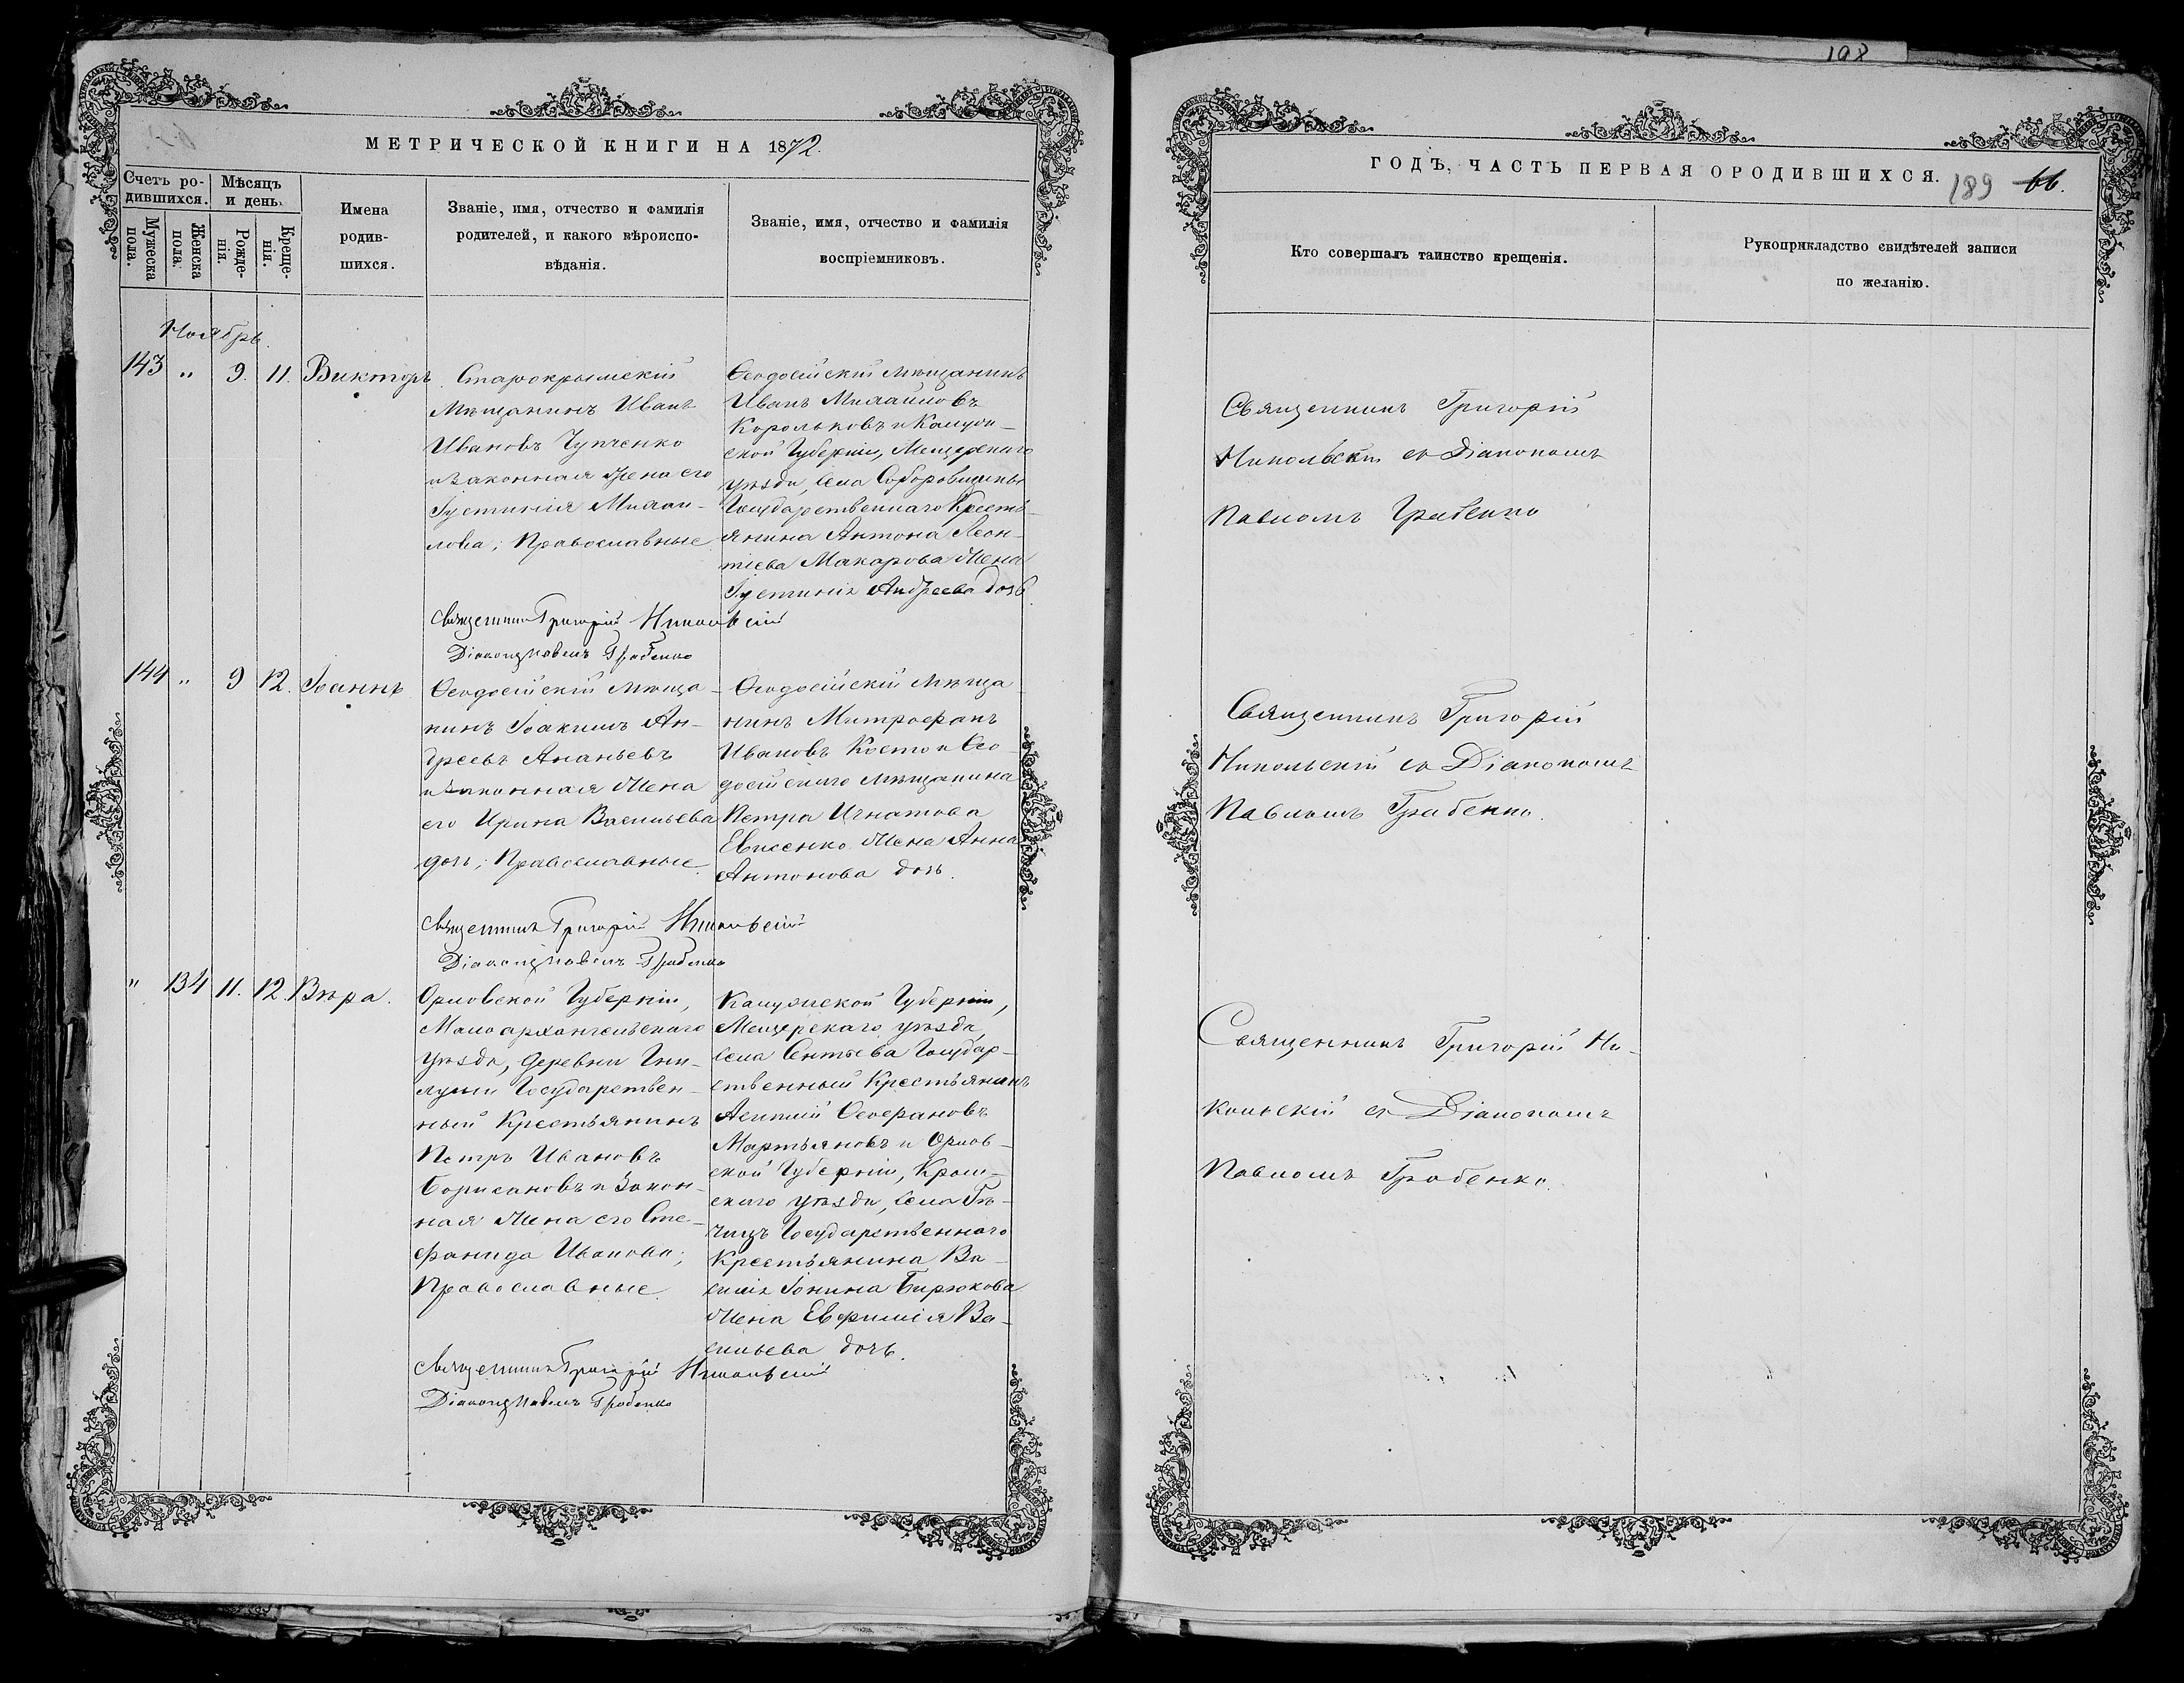 108
МЕТРИЧЕСКОЙ КНИГИ НА 1872.
Счетъ ро-
дившихся.
Мѣсяцъ
и день.
Мужеска
пола.
Женска
пола.
Рожде-
нія.
Креще-
нія.
Имена
родив-
шихся.
Званіе, имя, отчество и фамилія
родителей, и какого вѣроиспо-
вѣданія.
Званіе, имя, отчество и фамилія
воспріемниковъ.
Ноябрь.
143 " 9. 11. Викторъ
Старокрымскій
Мѣщанинъ Иванъ
Ивановъ Чупченко
и законная жена его
Іустинія Михаи-
лова; Православные
Ѳеодосійскій мѣщанинъ
Иванъ Михайловъ
Корольковъ и Калуж-
ской Губерніи, Мещерскаго
уѣзда, села
Государственнаго Кресть-
янина Антона Леон-
тіева Макарова жена
Іустинія Андреева дочь
Священникъ Григорій Никольскій
Діаконъ Павелъ Грабенко
144 " 9 12. Іоаннъ
Ѳеодосійскій мѣща-
нинъ Іоакимъ Ан-
дреевъ Ананьевъ
и законная жена
его Ирина Васильева
дочь; Православные.
Ѳеодосійскій мѣща-
нинъ Митрофанъ
Ивановъ Косто и Ѳео-
досійскаго мѣщанина
Петра Игнатова
Евисенко жена Анна
Антонова дочь.
Священникъ Григорій Никольскій
Діаконъ Павелъ Грабенко
" 134 11. 12. Вѣра.
Орловской Губерніи,
Малоархангельскаго
уѣзда, деревни Гни-
луши Государствен-
ный Крестьянинъ
Петръ Ивановъ
Борисановъ и закон-
ная жена его Сте-
фанида Иванова;
Православные
Калужской Губерніи,
Мещерскаго уѣзда,
села Сентьева Государ-
ственный Крестьянинъ
Ѳеофановъ
Мартьяновъ и Орлов-
ской Губерніи, Кром-
скаго уѣзда, села Гѣ-
чицъ Государственнаго
Крестьянина Ва-
силія Іонина Бирюкова
жена Евфимія Ва-
сильева дочь.
Священникъ Григорій Никольскій
Діаконъ Павелъ Грабенко
ГОДЪ, ЧАСТЬ ПЕРВАЯ О РОДИВШИХСЯ.
189 66.
Кто совершалъ таинство крещенія.
Рукоприкладство свидѣтелей записи
по желанію.
Священникъ Григорій
Никольскій съ Діакономъ
Павломъ Грабенко
Священникъ Григорій
Никольскій съ Діакономъ
Павломъ Грабенко.
Священникъ Григорій Ни-
кольскій съ Діакономъ
Павломъ Грабенко.